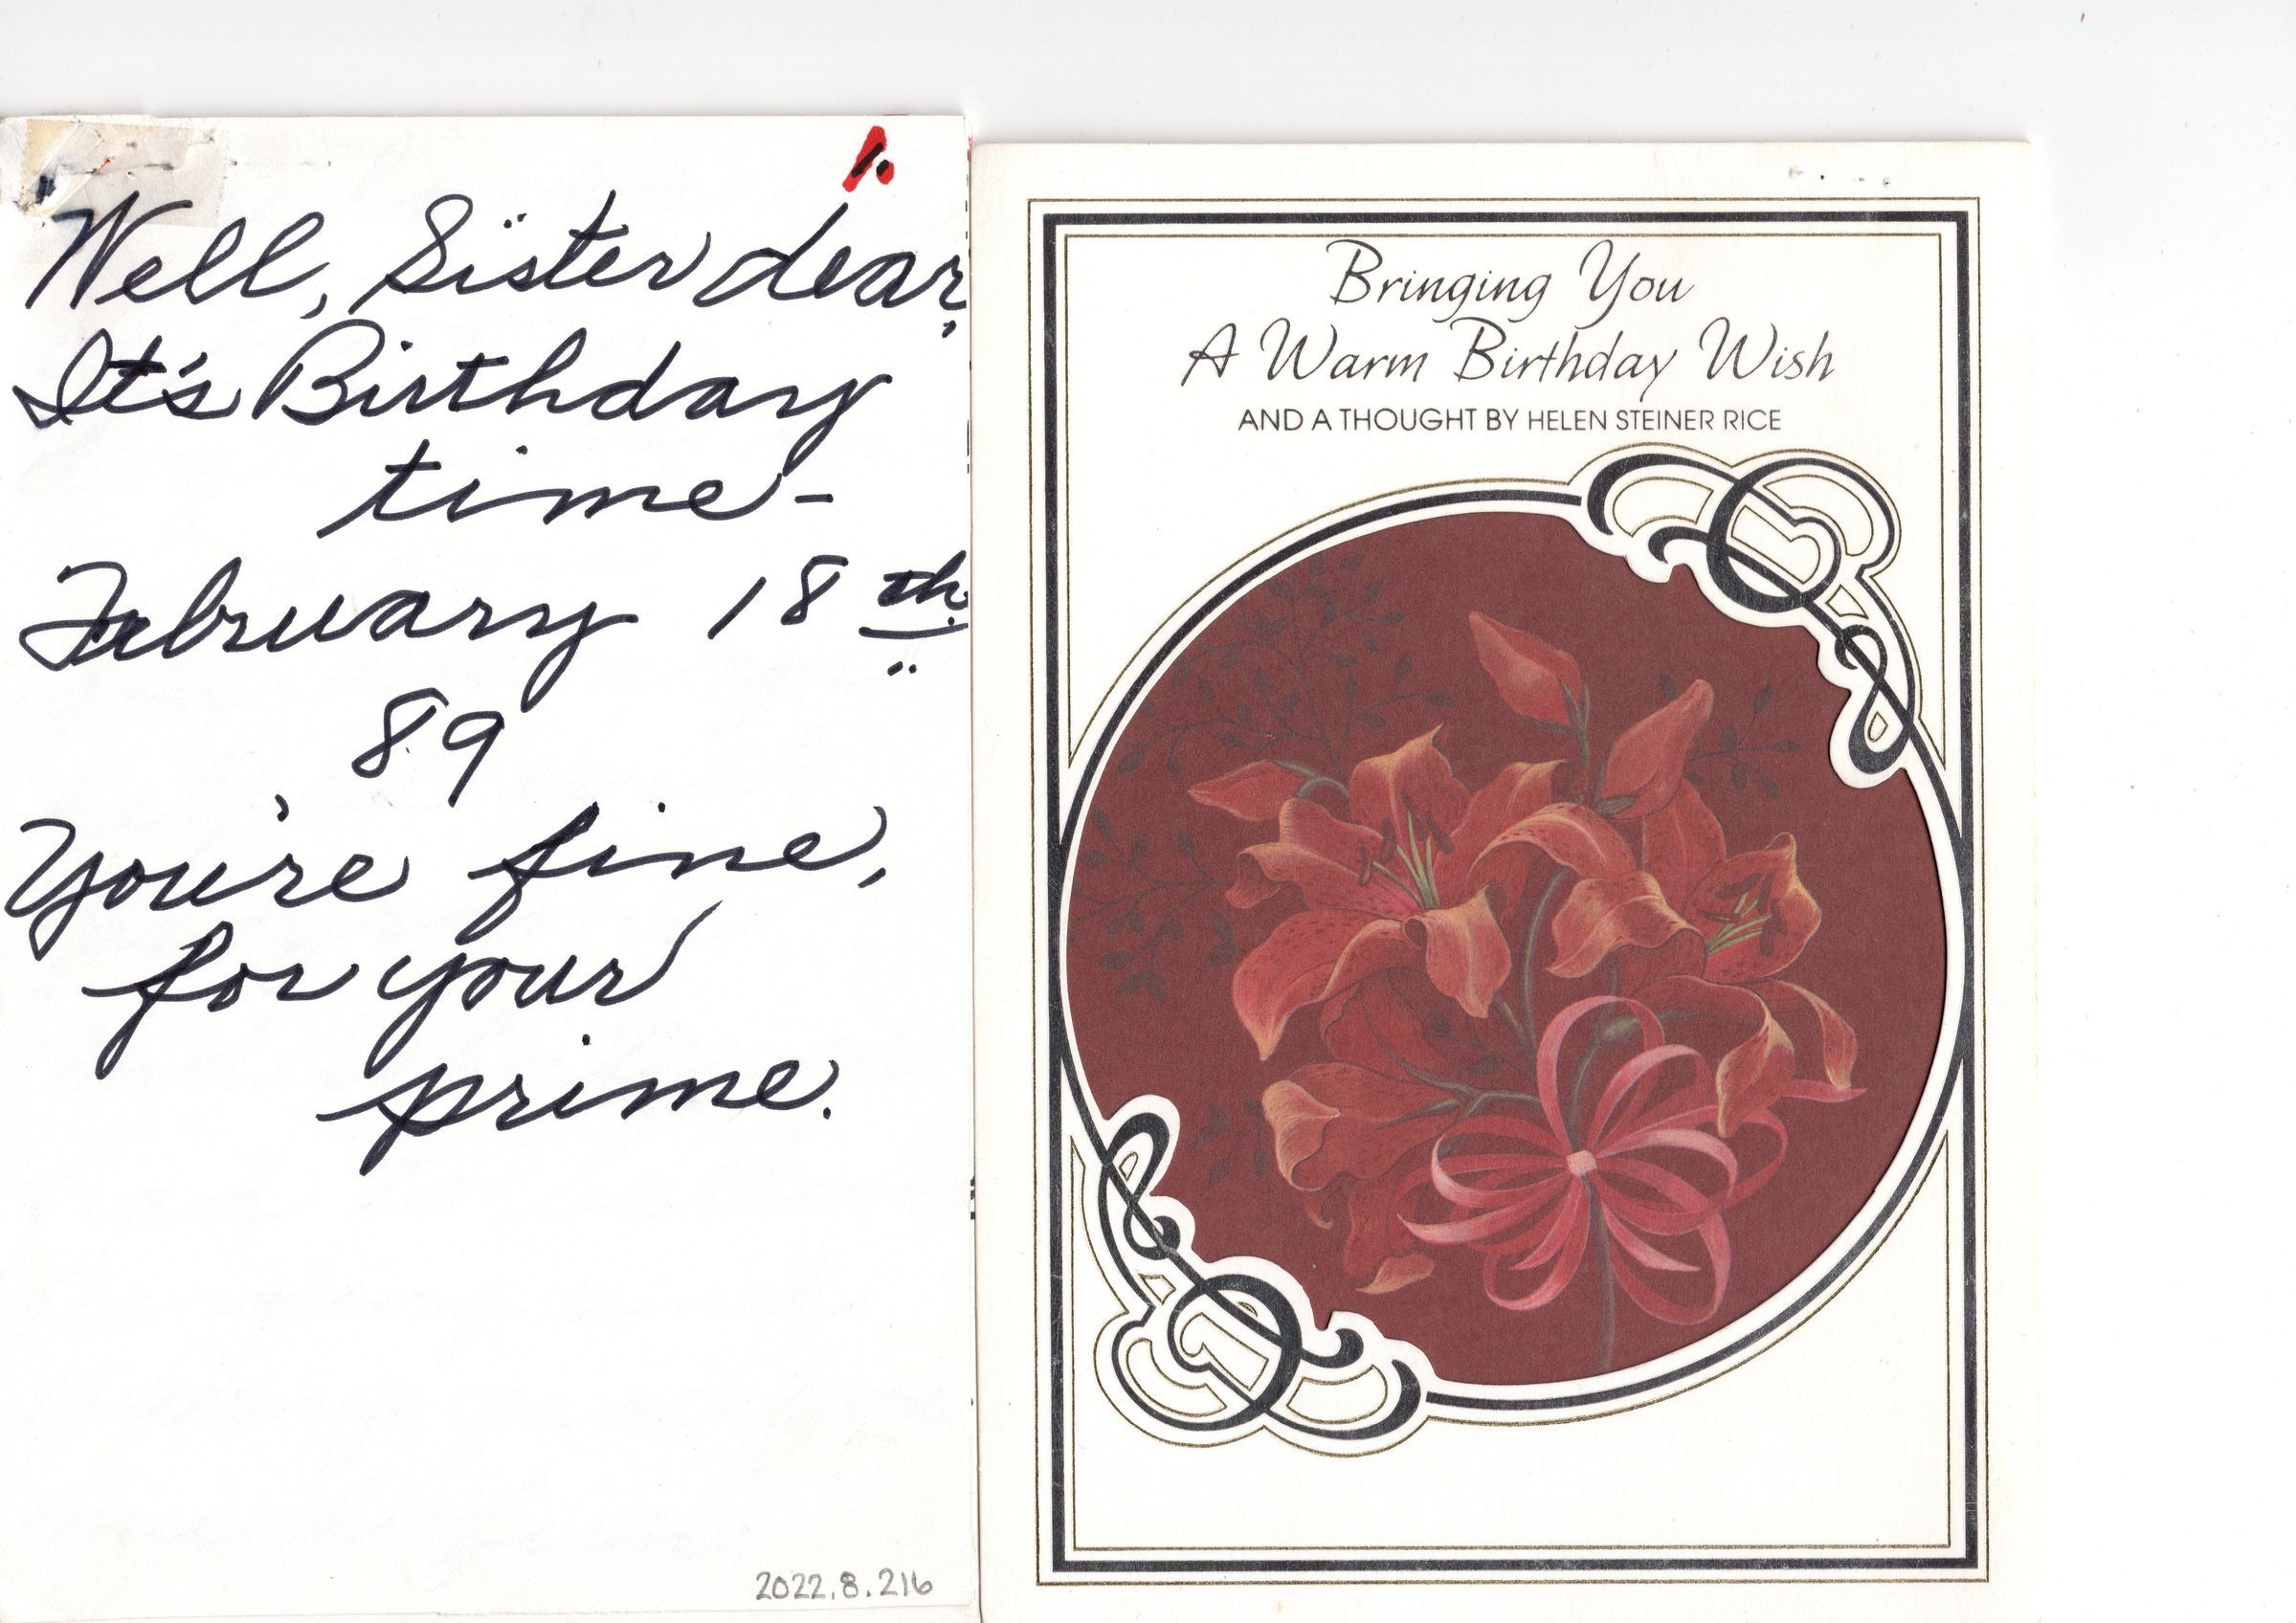 1.
Well, Sister dear,
It's Birthday
time-
February 18th.
89
You're fine,
for your
prime.
2022.8.216
Bringing You
A Warm Birthday Wish
AND A THOUGHT BY HELEN STEINER RICE